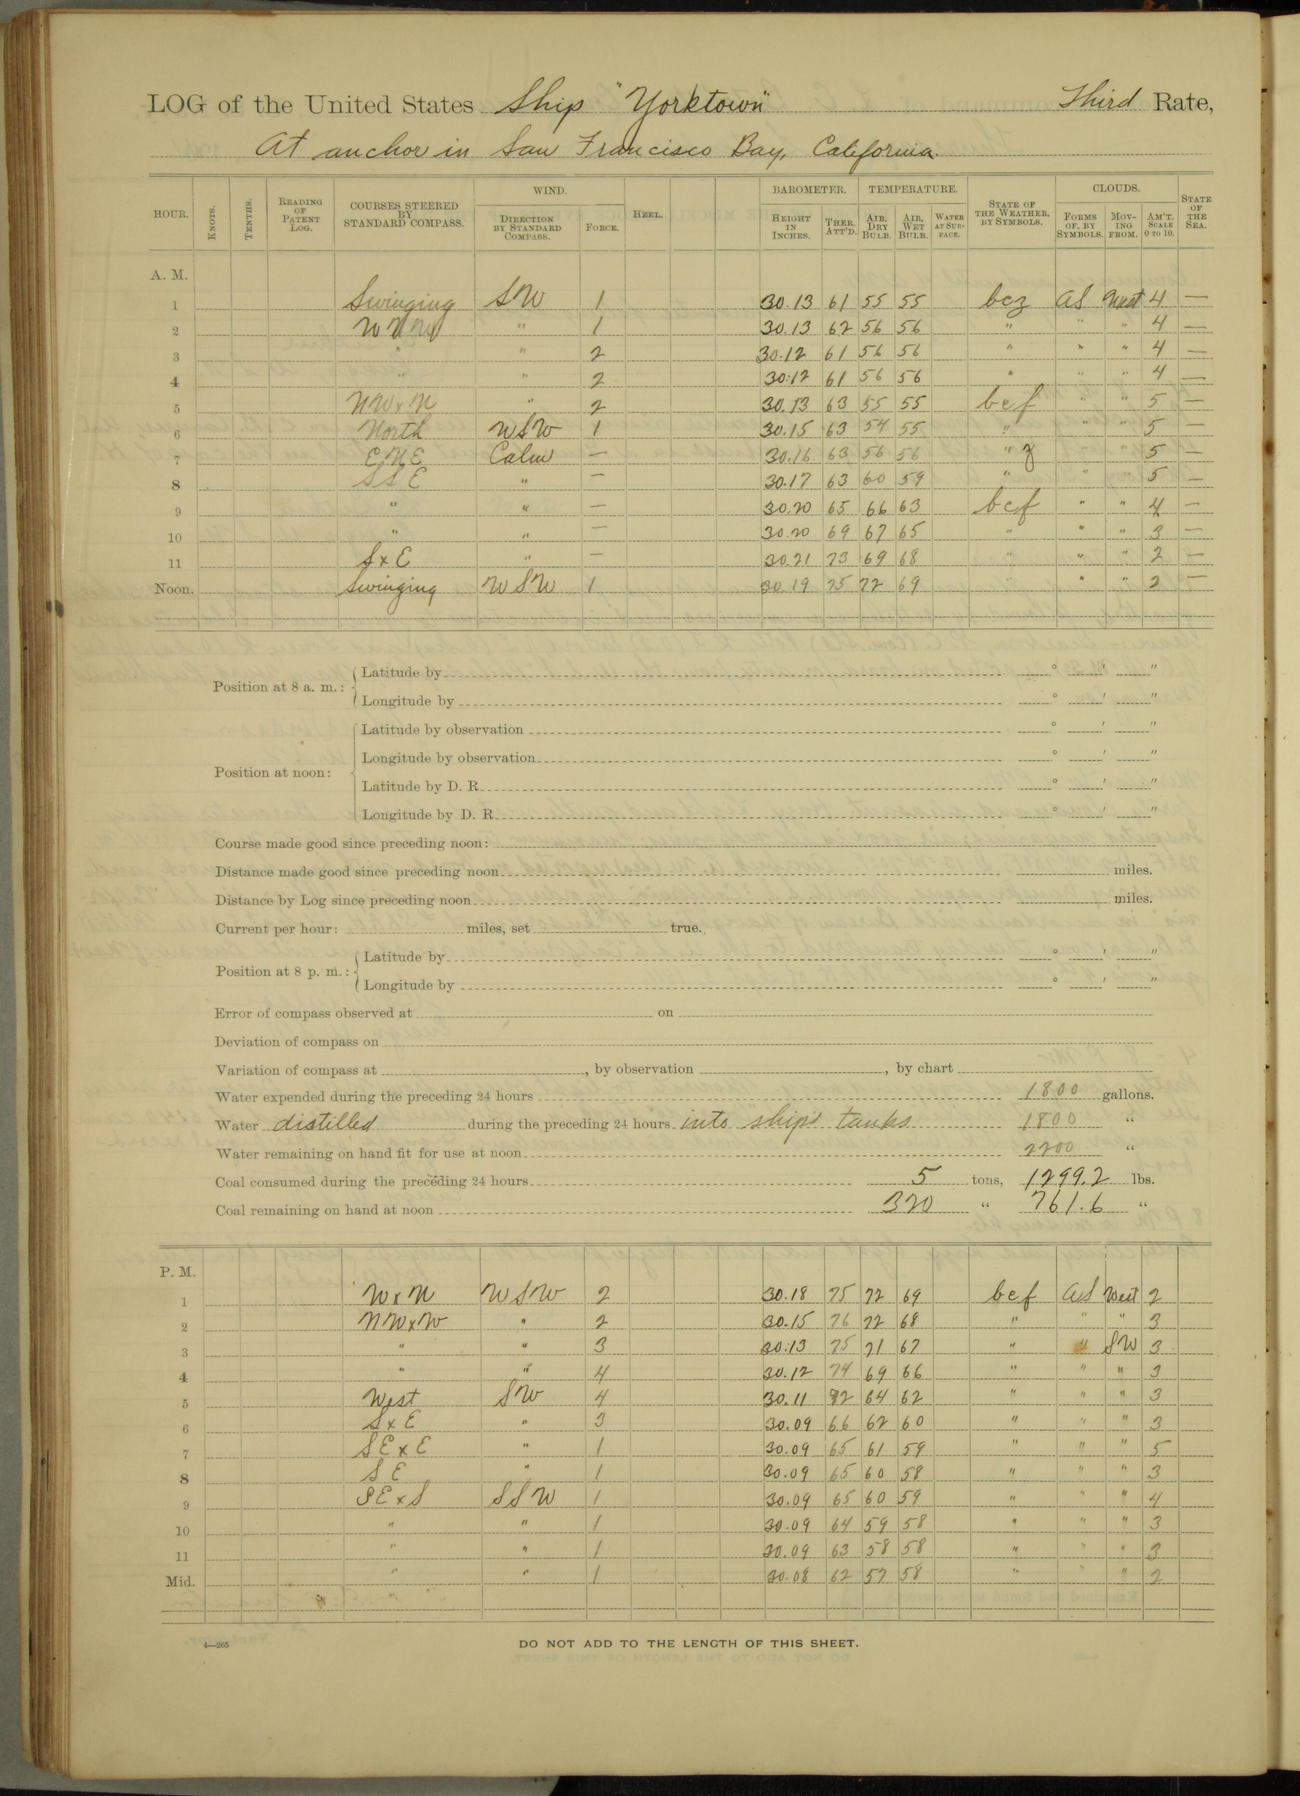 LOG of the United States Ship "Yorktown" Third Rate,
At anchor in San Francisco Bay, California.
HOUR. KNOTS. TENTHS. READING OF PATENT LOG. COURSES STEERED BY STANDARD COMPASS. WIND. DIRECTION BY STANDARD COMPASS. FORCE. HEEL. BAROMETER. HEIGHT IN INCHES. THER. ATT'D. TEMPERATURE. AIR, DRY BULB. AIR, WET BULB. WATER AT SURFACE. STATE OF THE WEATHER, BY SYMBOLS. CLOUDS. FORMS OF, BY SYMBOLS. MOVING FROM. AM'T. SCALE 0 TO 10. STATE OF THE SEA.
A. M.
1 Swinging SW 1 30.13 61 55 55 bcz aS West 4 —
2 WNW " 1 30.13 62 56 56 " " " 4 —
3 " " 2 30.12 61 56 56 " " " 4 —
4 " " 2 30.12 61 56 56 " " " 4 —
5 NWxN " 2 30.13 63 55 55 bcf " " 5 —
6 North WSW 1 30.15 63 54 55 " " " 5 —
7 ENE Calm — 30.16 63 56 56 " z " " 5 —
8 SSE " — 30.17 63 60 59 " " " 5 —
9 " " — 30.20 65 66 63 bcf " " 4 —
10 " " — 30.20 69 67 65 " " " 3 —
11 SxE " — 30.21 73 69 68 " " " 2 —
Noon. Swinging WSW 1 30.19 75 72 69 " " " 2 —
Position at 8 a. m.: Latitude by ° ' "
Longitude by ° ' "
Position at noon: Latitude by observation ° ' "
Longitude by observation ° ' "
Latitude by D. R. ° ' "
Longitude by D. R. ° ' "
Course made good since preceding noon:
Distance made good since preceding noon miles.
Distance by Log since preceding noon miles.
Current per hour: miles, set true.
Position at 8 p. m.: Latitude by ° ' "
Longitude by ° ' "
Error of compass observed at on
Deviation of compass on
Variation of compass at , by observation , by chart
Water expended during the preceding 24 hours 1800 gallons.
Water distilled during the preceding 24 hours into ships tanks 1800 "
Water remaining on hand fit for use at noon 2200 "
Coal consumed during the preceding 24 hours 5 tons, 1299.2 lbs.
Coal remaining on hand at noon 320 " 761.6 "
P. M.
1 WxN WSW 2 30.18 75 72 69 bcf aS West 2
2 NWxW " 2 30.15 76 72 68 " " " 3
3 " " 3 30.13 75 71 67 " " SW 3
4 " " 4 30.12 74 69 66 " " " 3
5 West SW 4 30.11 72 64 62 " " " 3
6 SxE " 3 30.09 66 62 60 " " " 3
7 SExE " 1 30.09 65 61 59 " " " 5
8 SE " 1 30.09 65 60 58 " " " 3
9 SExS SSW 1 30.09 65 60 59 " " " 4
10 " " 1 30.09 64 59 58 " " " 3
11 " " 1 30.09 63 58 58 " " " 3
Mid. " " 1 30.08 62 57 58 " " " 2
4—265
DO NOT ADD TO THE LENGTH OF THIS SHEET.